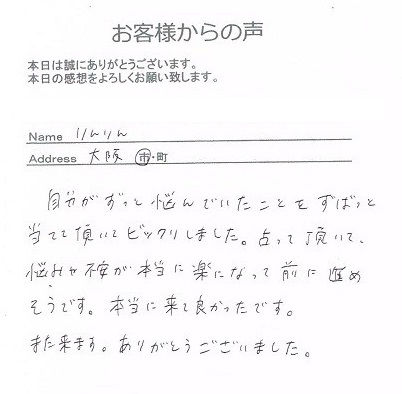 お客様からの声
本日は誠にありがとうございます。
本日の感想をよろしくお願い致します。
Name りんりん
Address 大阪 市・町
自分がずっと悩んでいたことをずばっと
当てて頂いてビックリしました。占って頂いて、
悩みや不安が本当に楽になって前に進め
そうです。本当に来て良かったです。
また来ます。ありがとうございました。